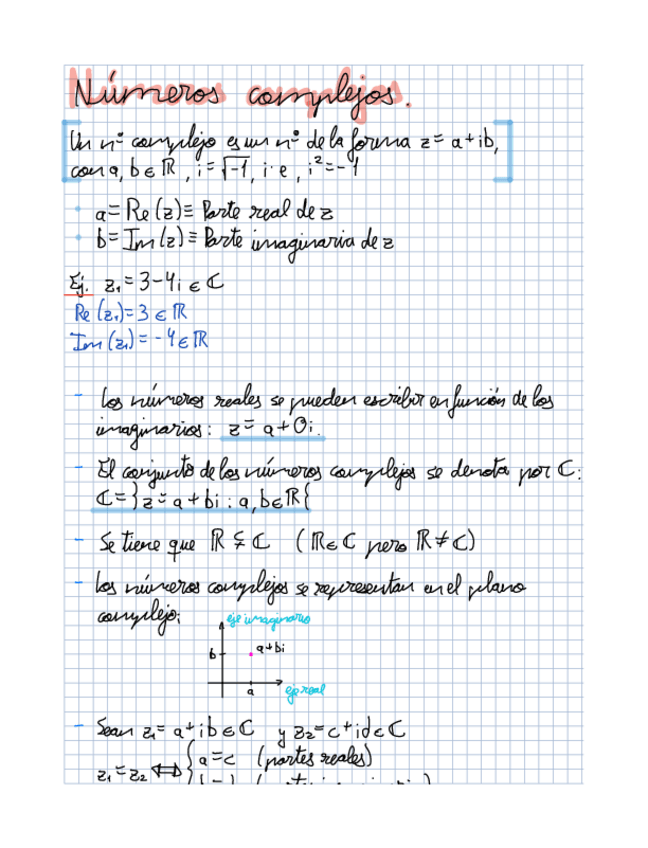 Números complejos.
Un nº complejo es un nº de la forma z = a + ib,
con a, b ∈ ℝ, i = √-1, i·e, i² = -1
a = Re(z) ≡ Parte real de z
b = Im(z) ≡ Parte imaginaria de z
Ej. z₁ = 3 - 4i ∈ ℂ
Re(z₁) = 3 ∈ ℝ
Im(z₁) = -4 ∈ ℝ
- Los números reales se pueden escribir en función de los
imaginarios: z = a + 0i.
- El conjunto de los números complejos se denota por ℂ:
ℂ = }z = a + bi : a, b ∈ ℝ{
- Se tiene que ℝ ⊊ ℂ (ℝ ∈ ℂ pero ℝ ≠ ℂ)
- Los números complejos se representan en el plano
complejo:
eje imaginario
b
a + bi
a
eje real
- Sean z₁ = a + ib ∈ ℂ y z₂ = c + id ∈ ℂ
z₁ = z₂ ⇔ { a = c (partes reales)